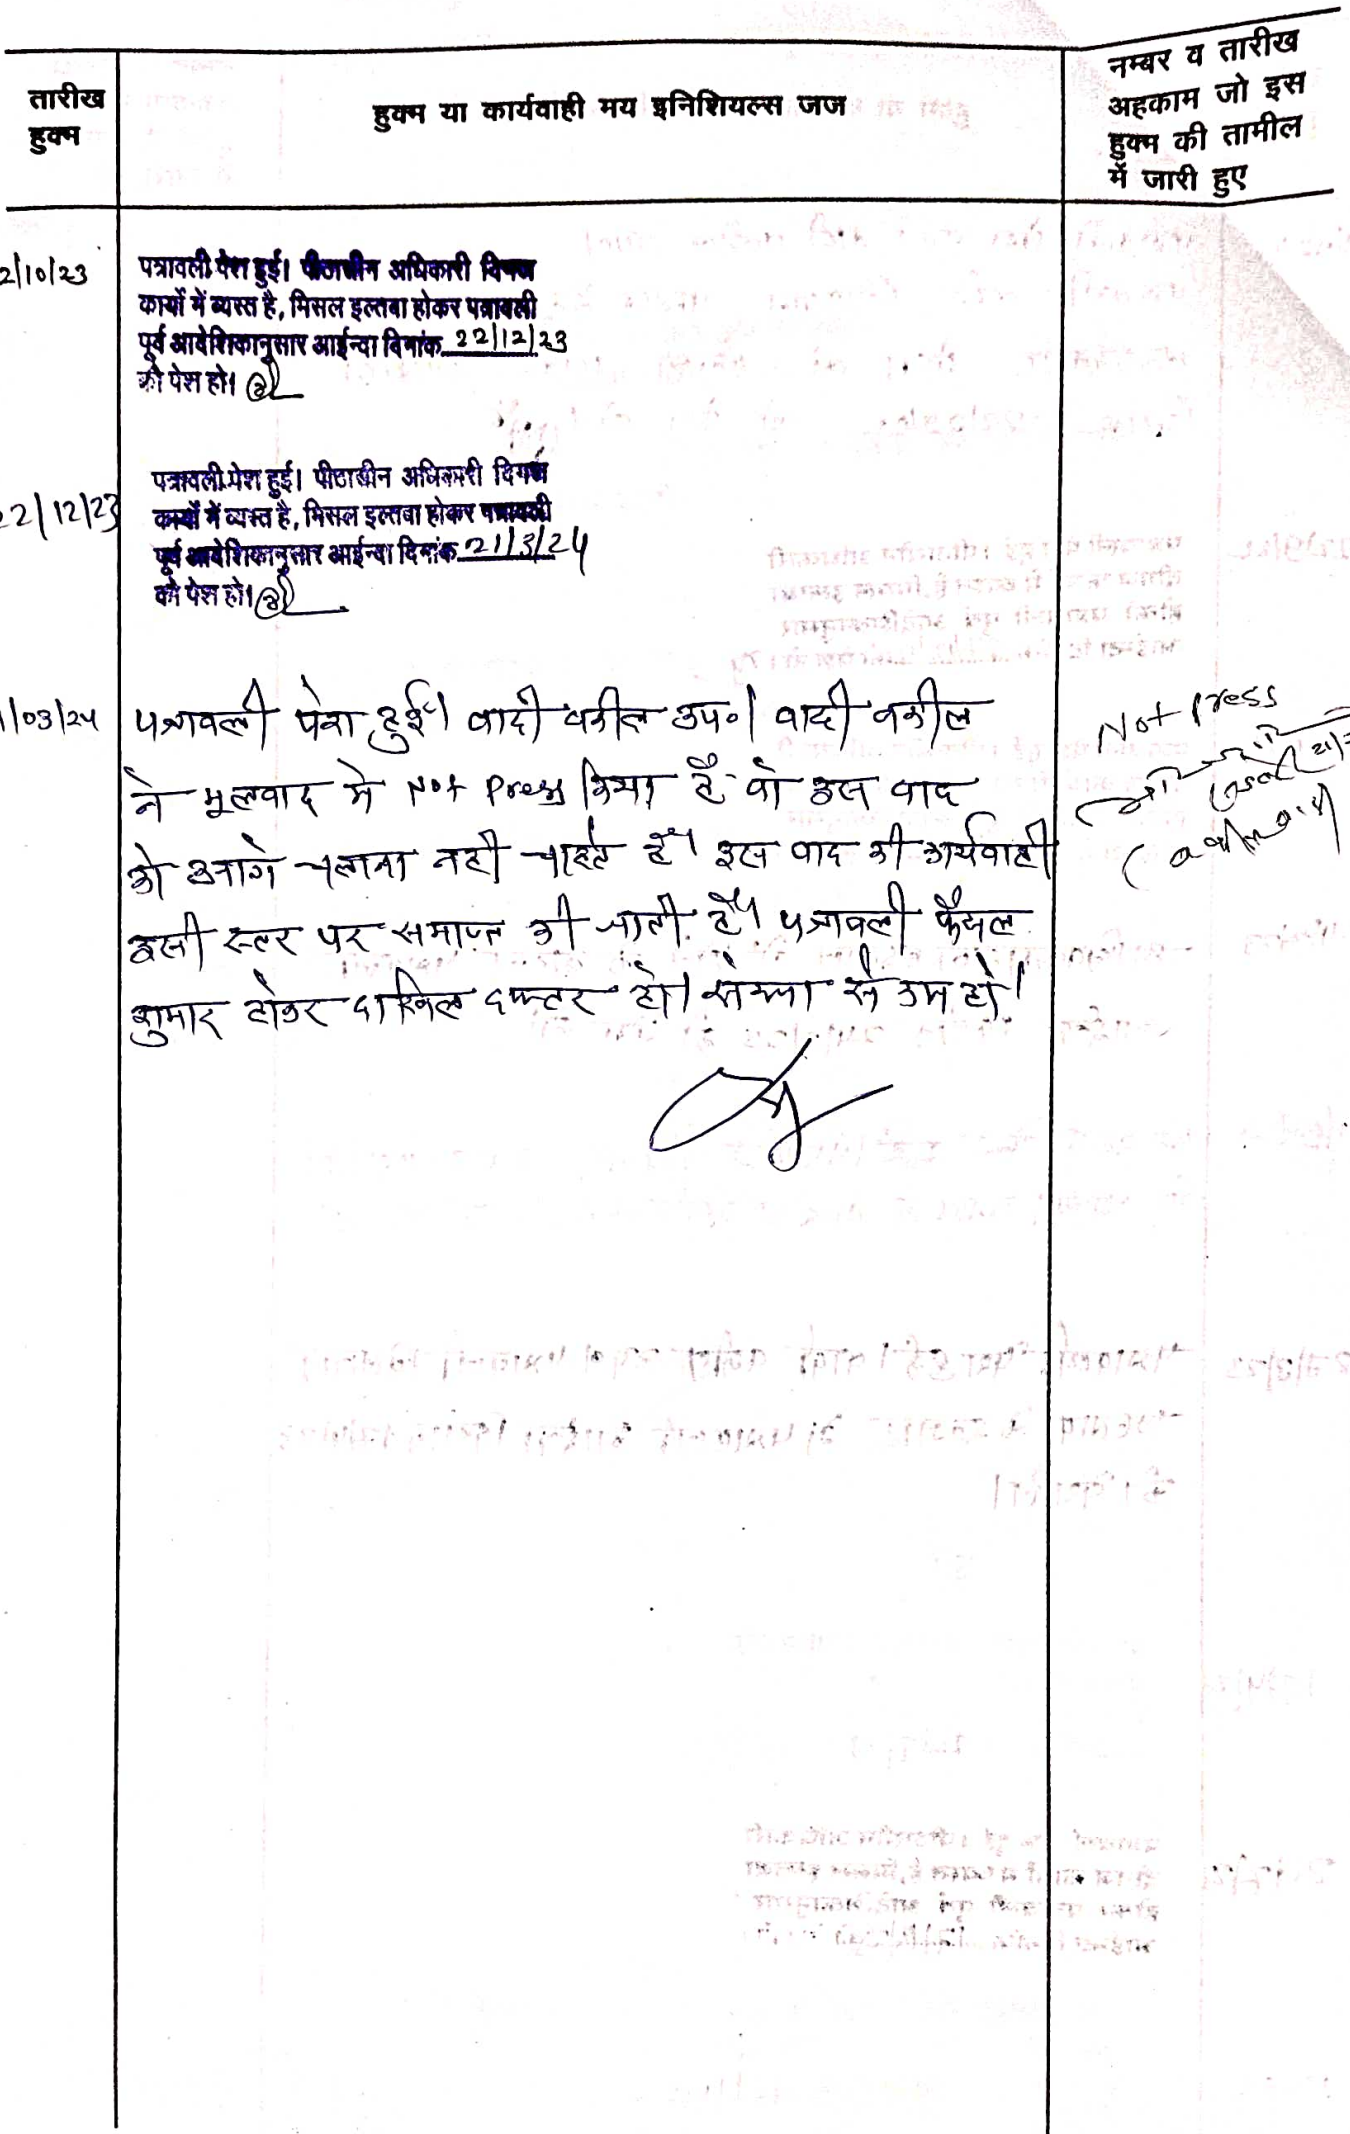 तारीख
हुक्म
हुक्म या कार्यवाही मय इनिशियल्स जज
नम्बर व तारीख
अहकाम जो इस
हुक्म की तामील
में जारी हुए
2/10/23
पत्रावली पेश हुई। पीठासीन अधिकारी दिगर
कार्यो में व्यस्त है, मिसल इल्तवा होकर पत्रावली
पूर्व आदेशिकानुसार आईन्दा दिनांक 22/12/23
को पेश हो।
22/12/23
पत्रावली पेश हुई। पीठासीन अधिकारी दिगर
कार्यो में व्यस्त है, मिसल इल्तवा होकर पत्रावली
पूर्व आदेशिकानुसार आईन्दा दिनांक 21/3/24
को पेश हो।
1/03/24
पत्रावली पेश हुई। वादी वकील उप०। वादी वकील
ने मूलवाद मे Not Press किया है वो इस वाद
को आगे चलाना नही चाहते है। इस वाद की कार्यवाही
इसी स्तर पर समाप्त की जाती है। पत्रावली फैसल
शुमार होकर दाखिल दफ्तर हो। संख्या से कम हो।
Not Press